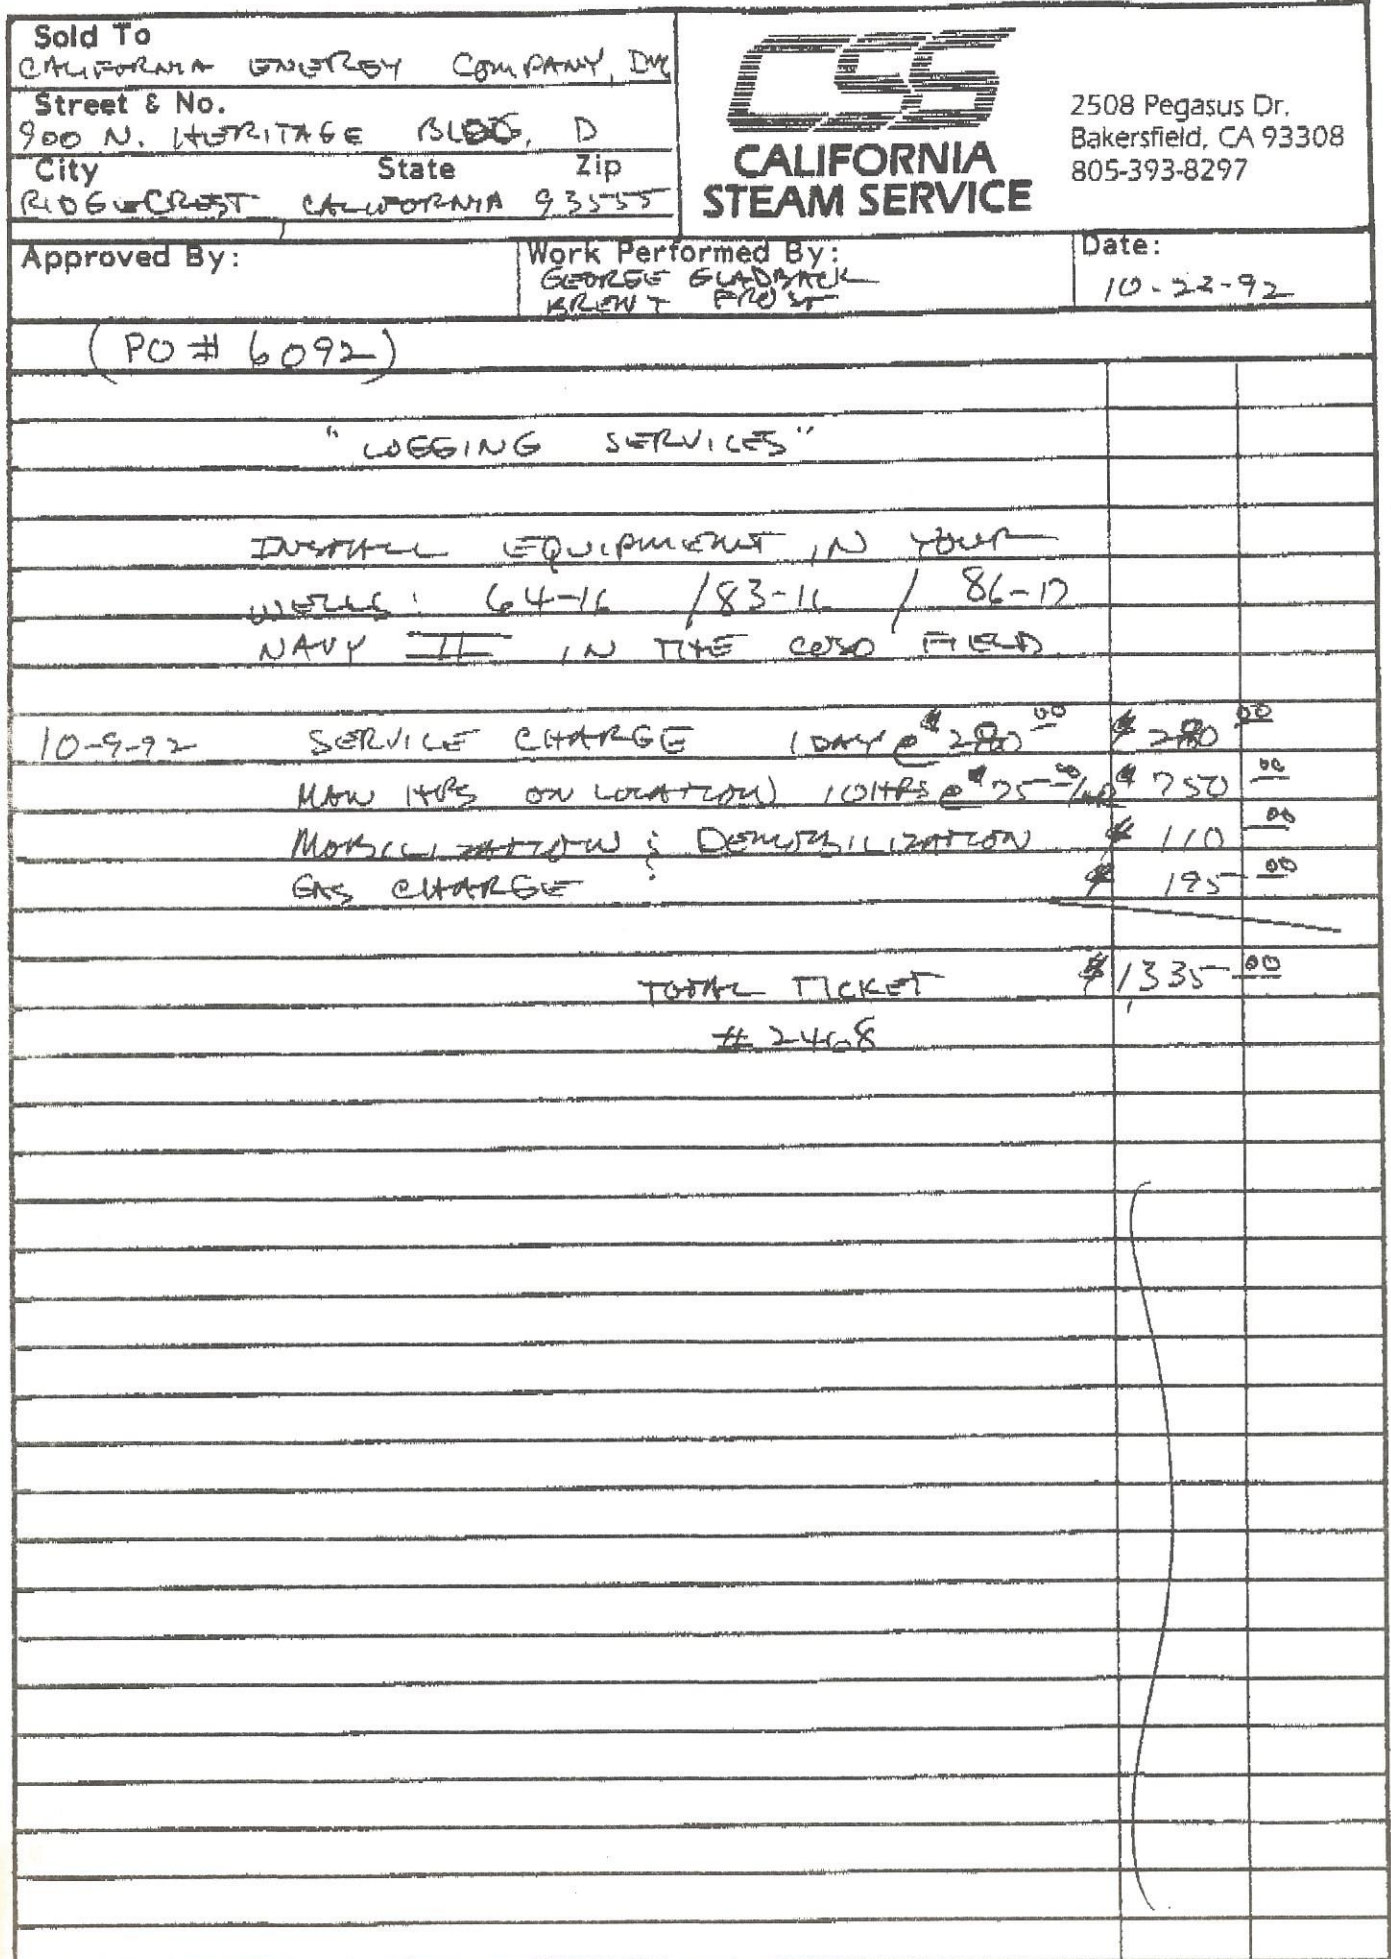 Sold To
CALIFORNIA ENERGY COMPANY, INC
Street & No.
900 N. HERITAGE BLDG, D
City State Zip
RIDGECREST, CALIFORNIA 93555
CSS
CALIFORNIA
STEAM SERVICE
2508 Pegasus Dr.
Bakersfield, CA 93308
805-393-8297
Approved By:
Work Performed By:
GEORGE GLADBACK
BRENT FROST
Date:
10-22-92
(PO # 6092)
"LOGGING SERVICES"
INSTALL EQUIPMENT IN YOUR
WELLS: 64-16 / 83-16 / 86-17
NAVY II IN THE COSO FIELD
10-9-92 SERVICE CHARGE 1 DAY @ $280 00 $280 00
MAN HRS ON LOCATION) 10 HRS @ $75 00/HR $750 00
MOBILIZATION & DEMOBILIZATION $110 00
GAS CHARGE $195 00
TOTAL TICKET $1,335 00
# 2468